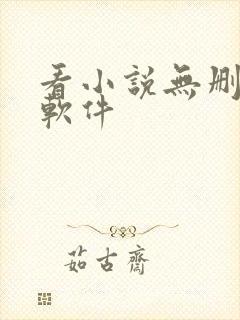 看小說無刪
軟件
茹古齋